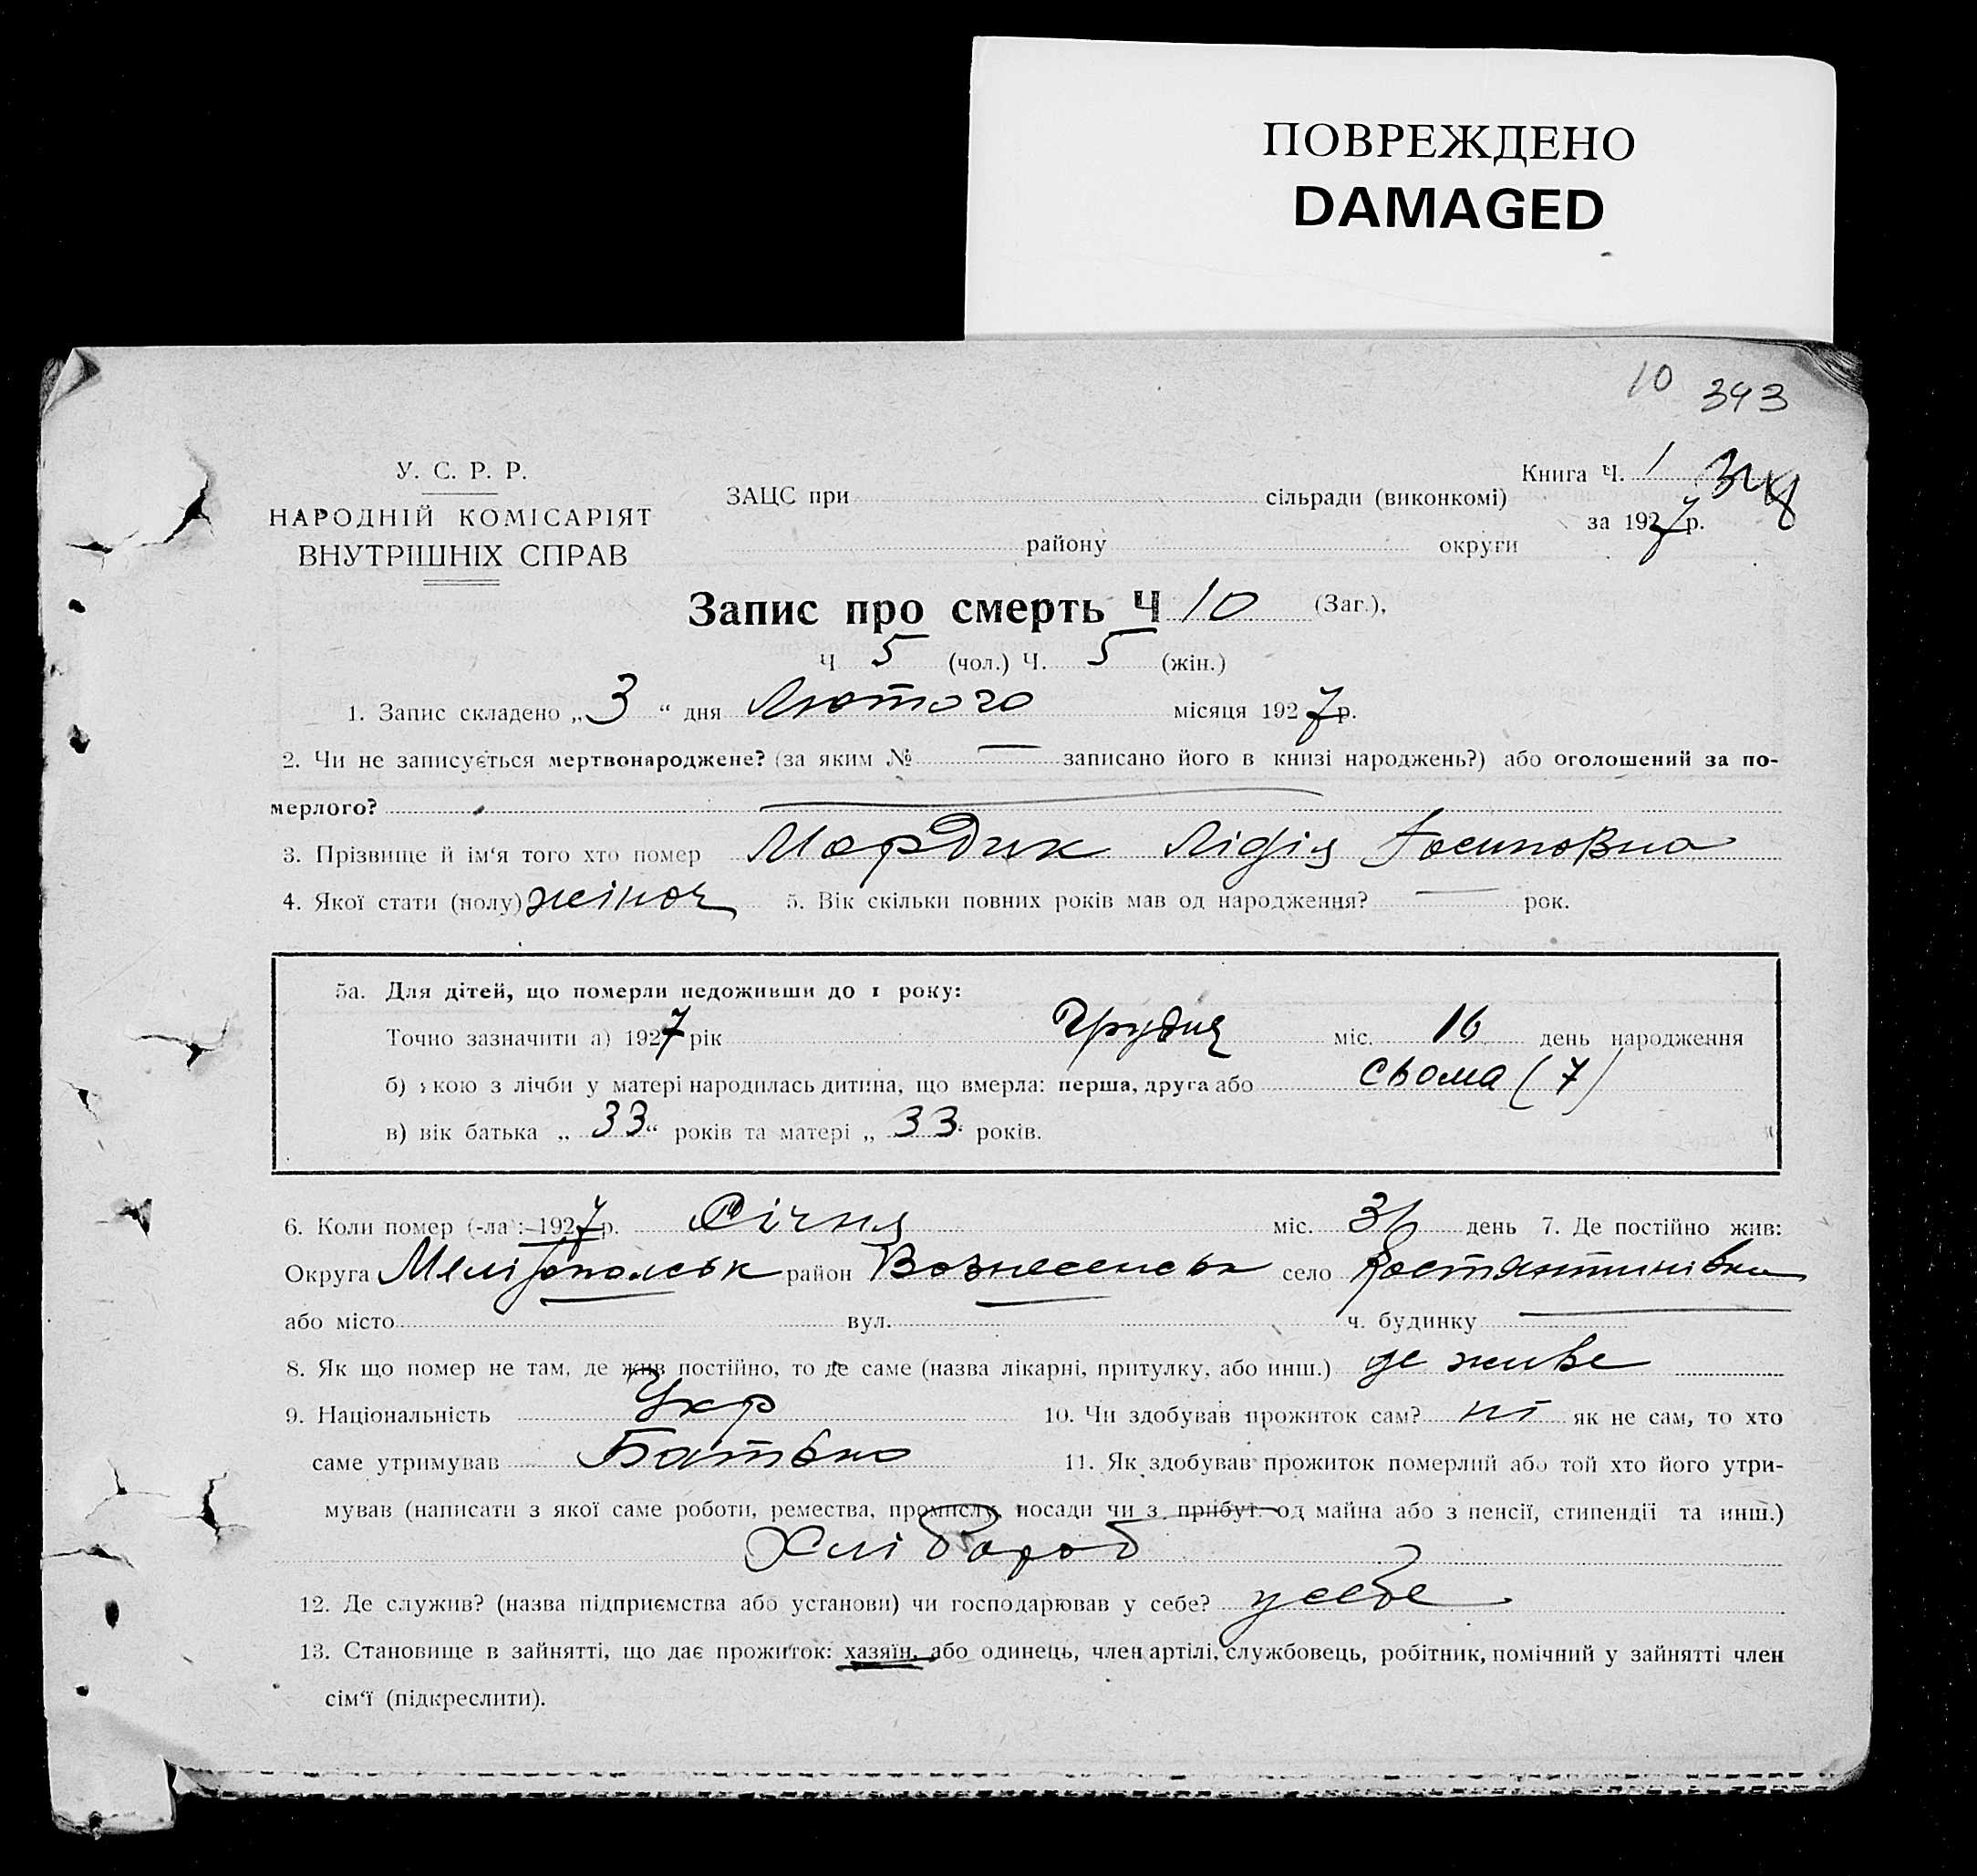 ПОВРЕЖДЕНО
DAMAGED
10 343
У. С. Р. Р.
НАРОДНІЙ КОМІСАРІЯТ
ВНУТРІШНІХ СПРАВ
Книга Ч. 1
ЗАЦС при сільради (виконкомі)
за 1927 р.
району округи
Запис про смерть Ч 10 (Заг.),
Ч 5 (чол.) Ч. 5 (жін.)
1. Запис складено „3“ дня Лютого місяця 1927 р.
2. Чи не записується мертвонароджене? (за яким № — записано його в книзі народжень?) або оголошений за по-
мерлого?
3. Прізвище й ім‘я того хто помер Мордик Лідія Иосиповна
4. Якої стати (полу) жіноч 5. Вік скільки повних років мав од народження? — рок.
5а. Для дітей, що померли недоживши до 1 року:
Точно зазначити а) 1927 рік Грудня міс. 16 день народження
б) якою з лічби у матері народилась дитина, що вмерла: перша, друга або сьома (7)
в) вік батька „33“ років та матері „33“ років.
6. Коли помер (-ла): 1927 р. Січня міс. 31 день 7. Де постійно жив:
Округа Мелітопольськ район Вознесенськ село Костянтинівка
або місто вул. ч. будинку —
8. Як що помер не там, де жив постійно, то де саме (назва лікарні, притулку, або инш.) де живе
9. Національність Укр 10. Чи здобував прожиток сам? ні як не сам, то хто
саме утримував Батько 11. Як здобував прожиток померлий або той хто його утри-
мував (написати з якої саме роботи, ремества, промислу, посади чи з прибут. од майна або з пенсії, стипендії та инш.)
Хлібороб
12. Де служив? (назва підприємства або установи) чи господарював у себе? у себе
13. Становище в зайнятті, що дає прожиток: хазяїн, або одинець, член артілі, службовець, робітник, помічний у зайнятті член
сім‘ї (підкреслити).